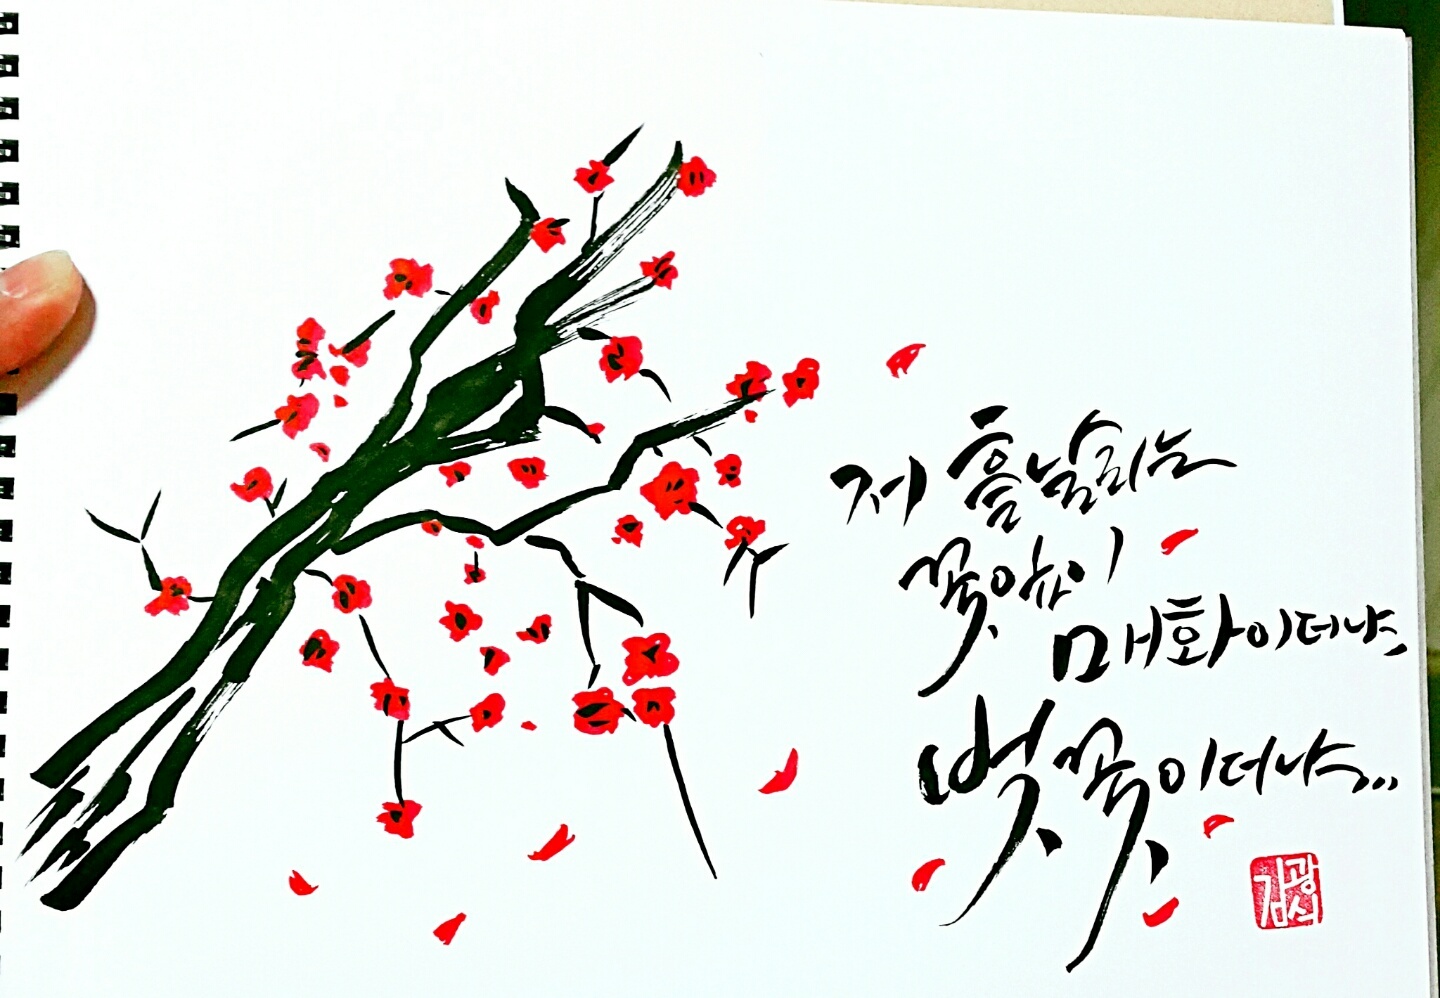 저 흩날리는
꽃잎이
매화이더냐,
벚꽃이더냐...
김광식